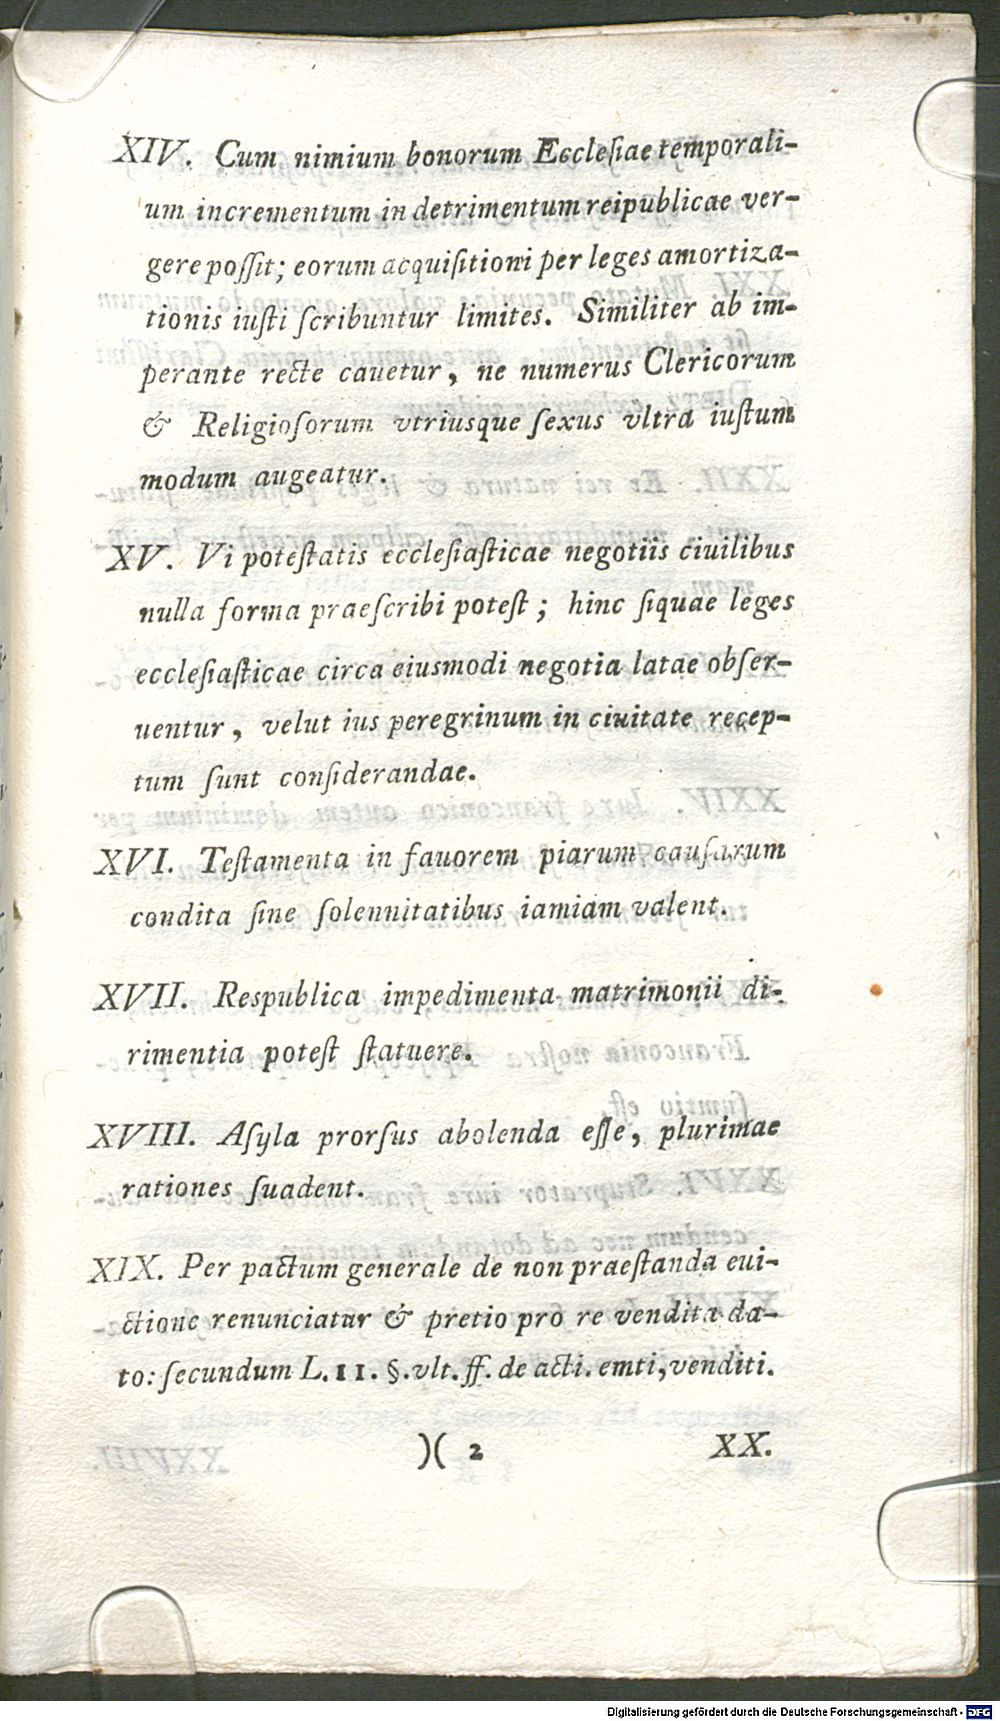 XIV. Cum nimium bonorum Eccleſiae temporali-
um incrementum in detrimentum reipublicae ver-
gere poſſit; eorum acquiſitioni per leges amortiza-
tionis iuſti ſcribuntur limites. Similiter ab im-
perante recte cauetur, ne numerus Clericorum
& Religioſorum vtriusque ſexus vltra iuſtum
modum augeatur.
XV. Vi poteſtatis eccleſiaſticae negotiis ciuilibus
nulla forma praeſcribi poteſt; hinc ſiquae leges
eccleſiaſticae circa eiusmodi negotia latae obſer-
uentur, velut ius peregrinum in ciuitate recep-
tum ſunt conſiderandae.
XVI. Teſtamenta in fauorem piarum cauſarum
condita ſine ſolennitatibus iamiam valent.
XVII. Respublica impedimenta matrimonii di-
rimentia poteſt ſtatuere.
XVIII. Aſyla prorſus abolenda eſſe, plurimae
rationes ſuadent.
XIX. Per pactum generale de non praeſtanda eui-
ctione renunciatur & pretio pro re vendita da-
to: ſecundum L. 11. §. vlt. ff. de acti. emti, venditi.
)( 2 XX.
Digitalisierung gefördert durch die Deutsche Forschungsgemeinschaft - DFG